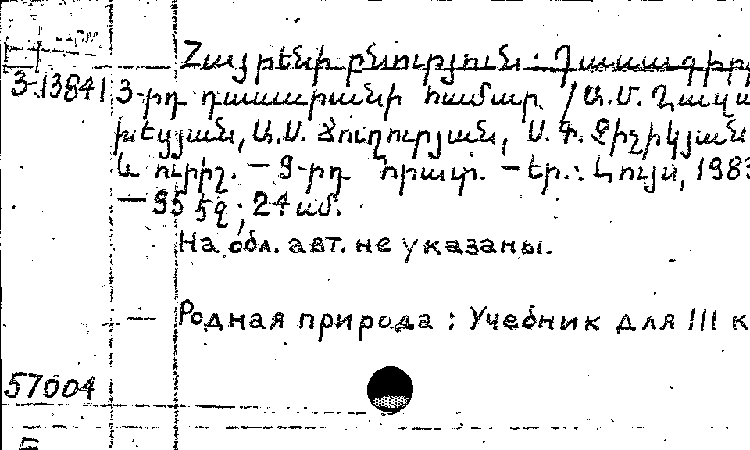 Հայրենի բնություն: Դասագիրք
3-13841 3-րդ դասարանի համար / Ա.Մ.
Ա.Ս. Ճուղուրյան, Ս.Փ. Ջիջիկյան
և ուրիշ. — 9-րդ հրատ. — Եր.: Լույս, 1983
— 95 էջ; 24 սմ.
На обл. авт. не указаны.
— Родная природа : Учебник для III к
57004